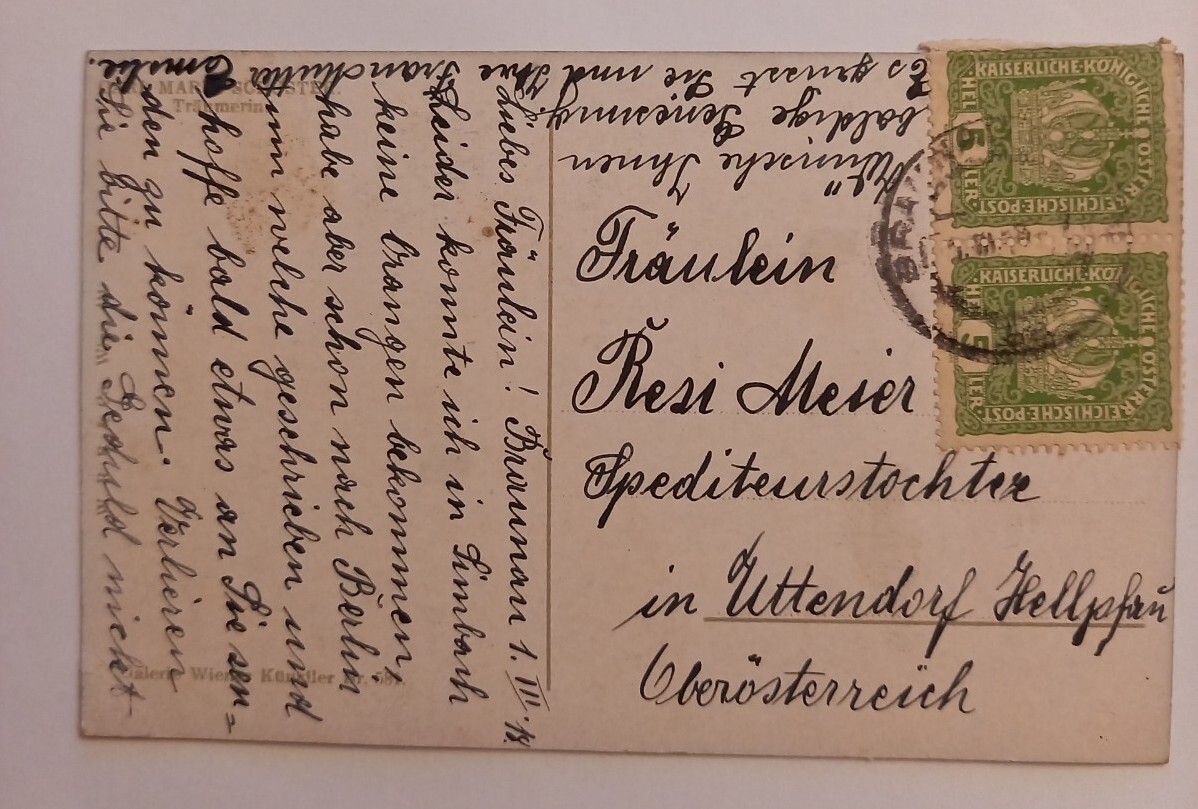 Liebes Fräulein! Braunau 1. III. 18.
Leider konnte ich in Simbach
keine Orangen bekommen,
habe aber schon nach Berlin
um welche geschrieben und
hoffe bald etwas an Sie sen=
den zu können. Verlieren
Sie bitte die Geduld nicht
Wünsche Ihnen
baldige Genesung.
Es grüsst Sie und Ihre
Familie
Fräulein
Resi Meier
Spediteurstochter
in Uttendorf Hellpfau
Oberösterreich
KAISERLICHE·KÖNIGLICHE ÖSTERREICHISCHE·POST
5 HELLER
KAISERLICHE·KÖNIGLICHE ÖSTERREICHISCHE·POST
5 HELLER
BRAUNAU
Träumerin
Galerie Wiener Künstler Nr. 587.